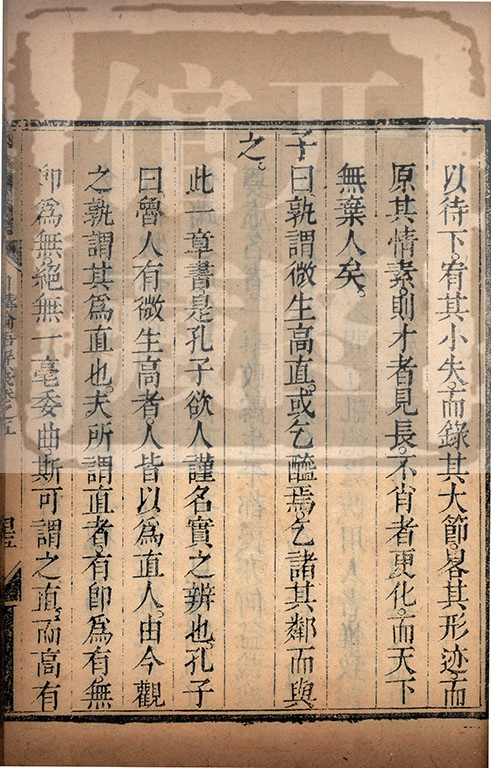 以待下。宥其小失。而錄其大節。畧其形迹。而
原其情素。則才者見長。不肖者更化。而天下
無棄人矣。
子曰。孰謂微生高直。或乞醯焉。乞諸其鄰而與
之。
此一章書。是孔子欲人謹名實之辨也。孔子
曰。魯人有微生高者。人皆以爲直人。由今觀
之。孰謂其爲直也。夫所謂直者。有卽爲有。無
卽爲無。絕無一毫委曲。斯可謂之直。而高有